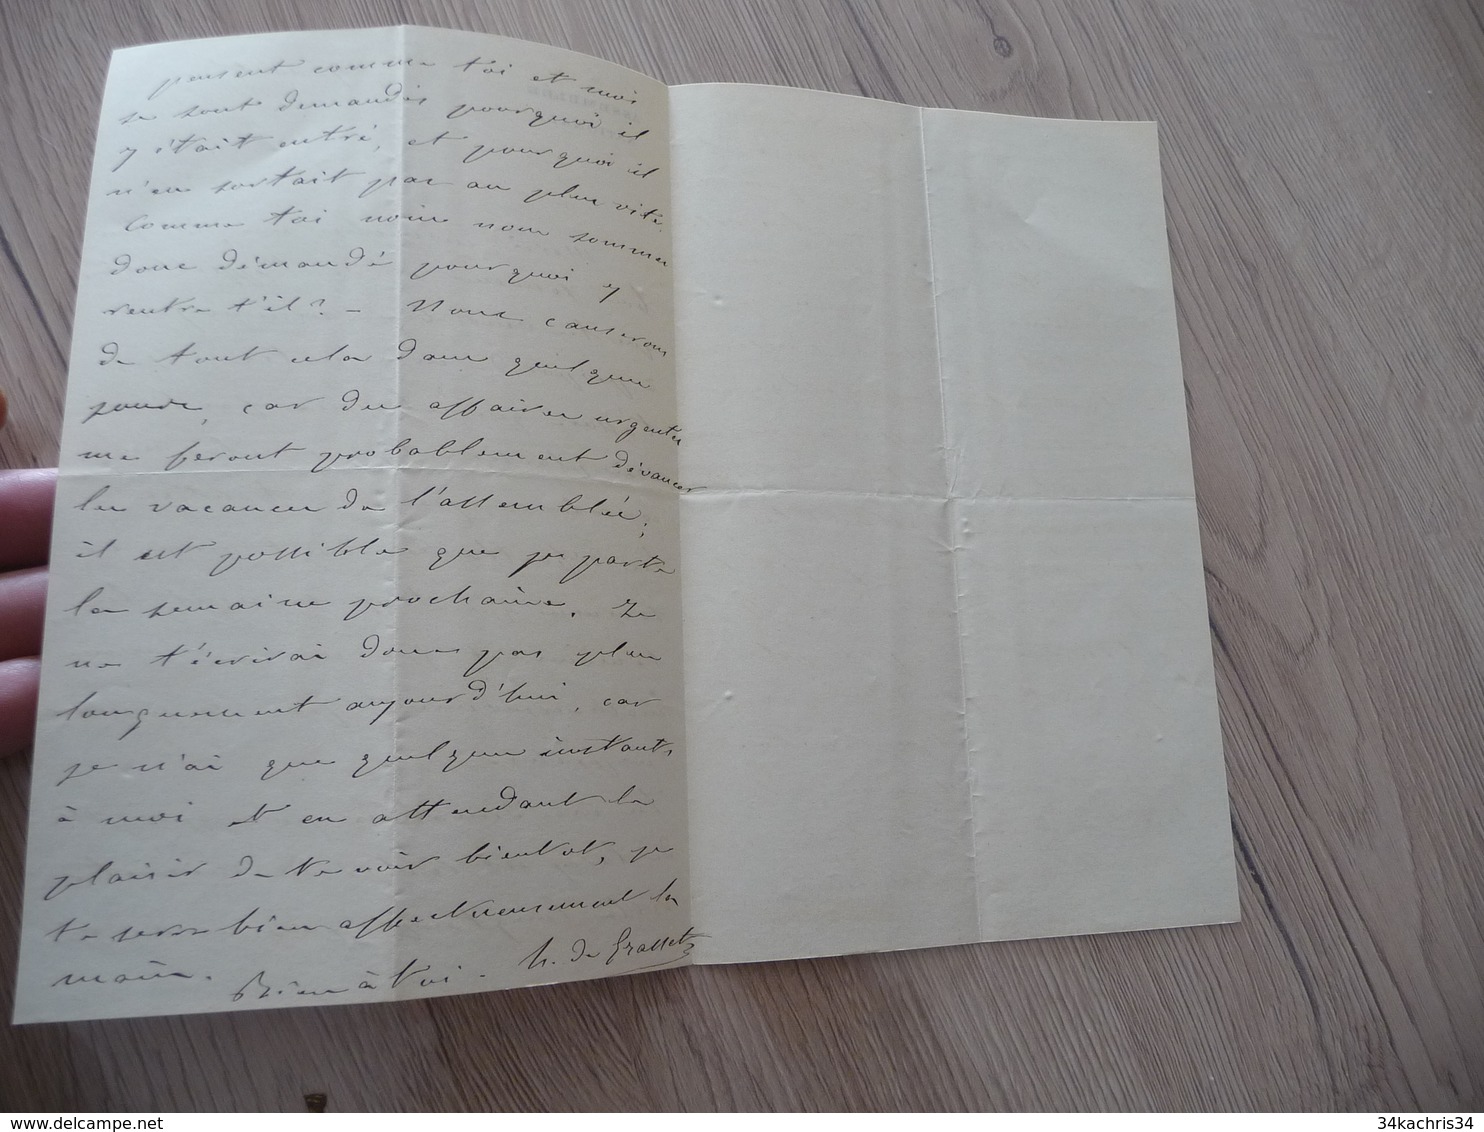 pensent comme toi et moi
se sont demandés pourquoi il
y était entré, et pourquoi il
n'en sortait pas au plus vite.
Comme toi nous nous sommes
donc démandé pourquoi y
rentre t'il? - Nous causerons
de tout cela dans quelques
jours, car des affaires urgentes
me feront probablement dévancer
les vacances de l'assemblée;
il est possible que je parte
la semaine prochaine. Je
ne t'écrirai donc pas plus
longuement aujourd'hui, car
je n'ai que quelques instants
à moi et en attendant le
plaisir de te voir bientot, je
te serre bien affectueusement la
main. Bien à toi - h. de Grasset
34kachris34
www.delcampe.net